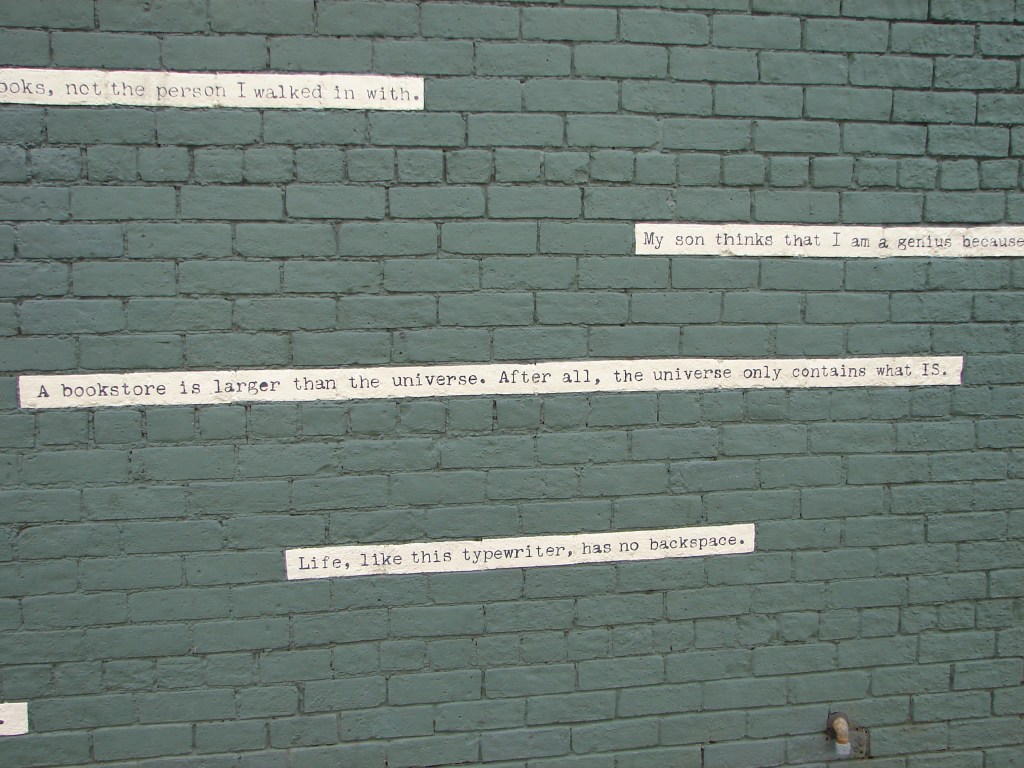 ooks, not the person I walked in with.
My son thinks that I am a genius because
A bookstore is larger than the universe. After all, the universe only contains what IS.
Life, like this typewriter, has no backspace.
.